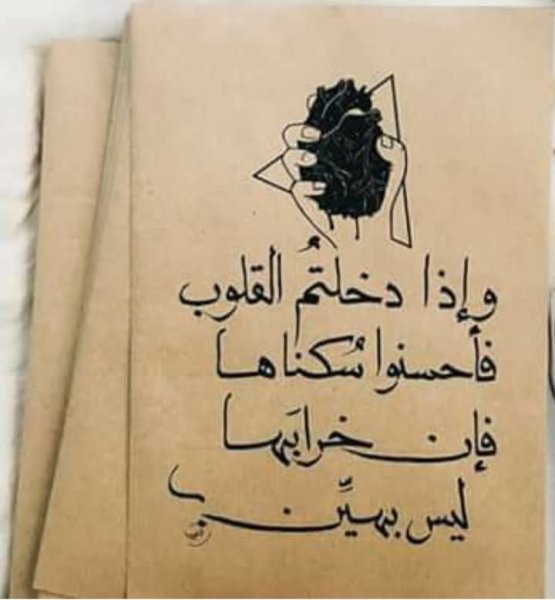 وإذا دخلتمُ القلوب
فأحسنوا سُكناها
فإن خرابَها
ليس بهيّن